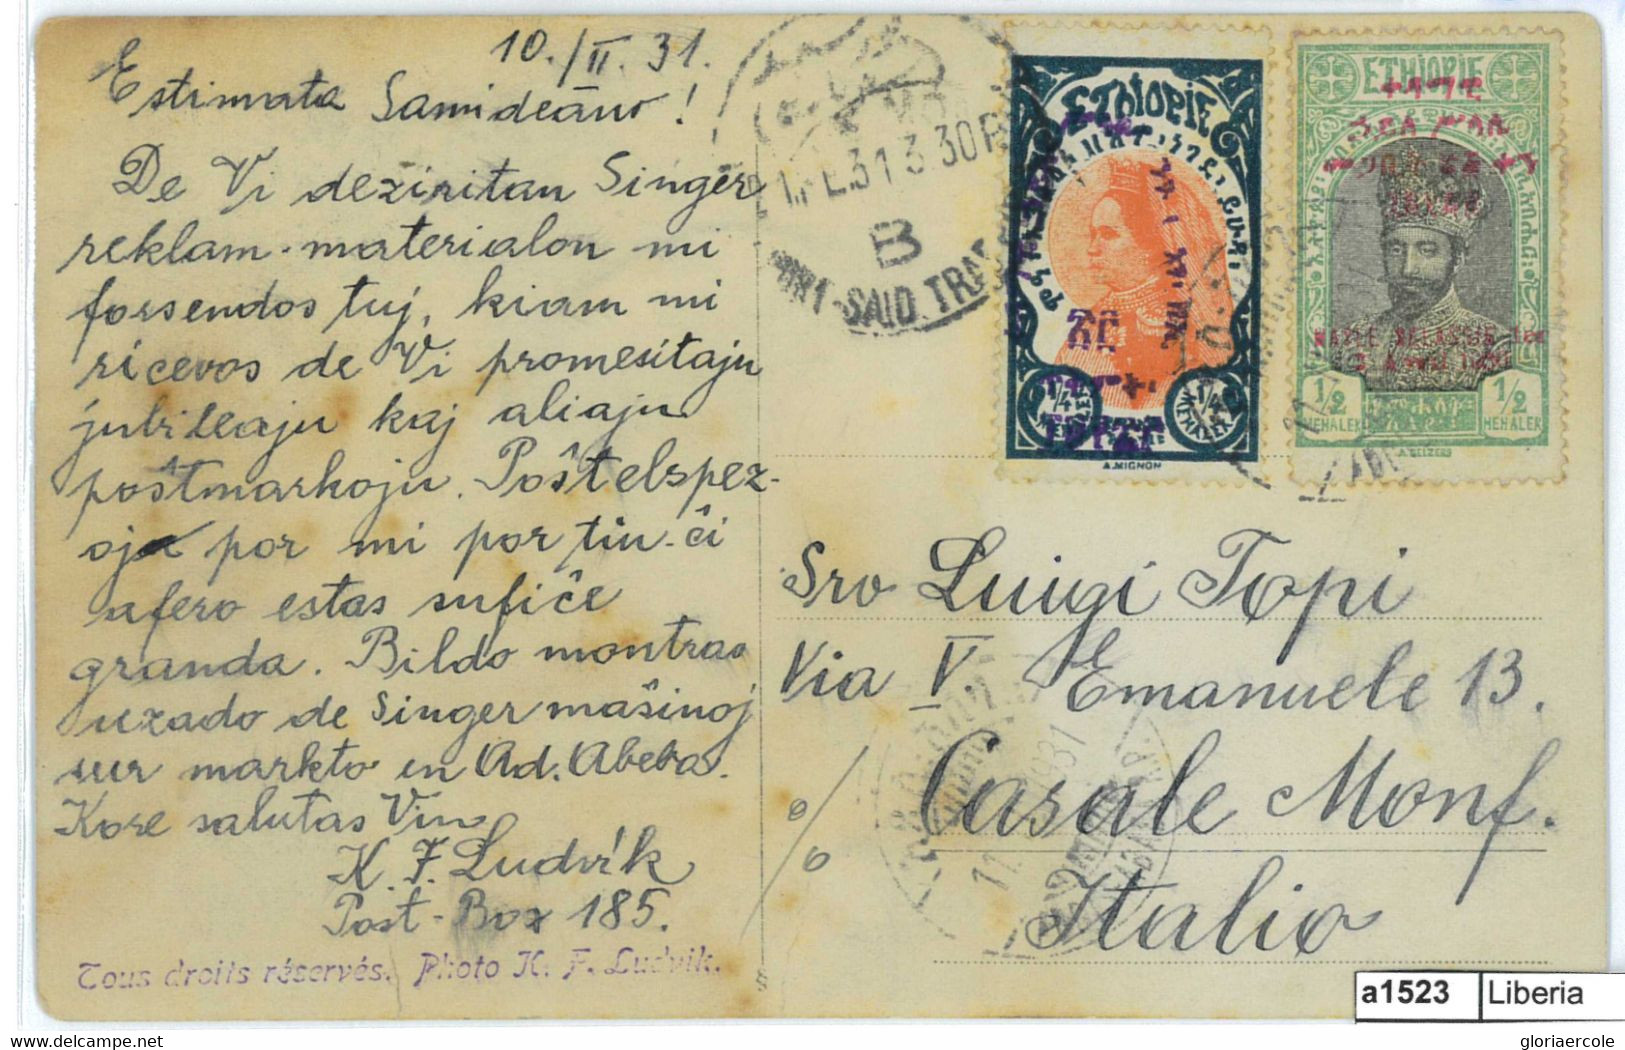 10./II. 31.
Estimata Samideano!
De Vi deziritan Singer
reklam-materialon mi
forsendos tuj, kiam mi
ricevos de Vi promesitaju
jubileaju kaj aliaju
poŝtmarkoju. Poŝtelspez-
oj por mi por tiu-ĉi
afero estas sufiĉe
granda. Bildo montras
uzado de Singer maŝinoj
sur markto en Ad. Abeba.
Kore salutas Vin
K. F. Ludvík
Post-Box 185.
Tous droits réservés. Photo K. F. Ludvik.
3 30 P
B
SAID TRA
ETHIOPIE
A. MIGNON
ETHIOPIE
HAILE SELASSIE 1er
1/2 1/2
MEHALEK MEHALEK
Sro Luigi Topi
Via V. Emanuele 13.
Casale Monf.
Italio
a1523 Liberia
delcampe.net
gloriaercole